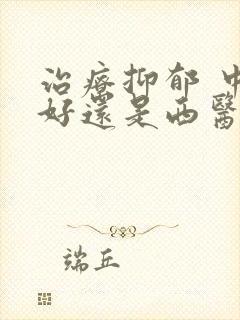 治療抑郁 中
好還是西醫
端丘